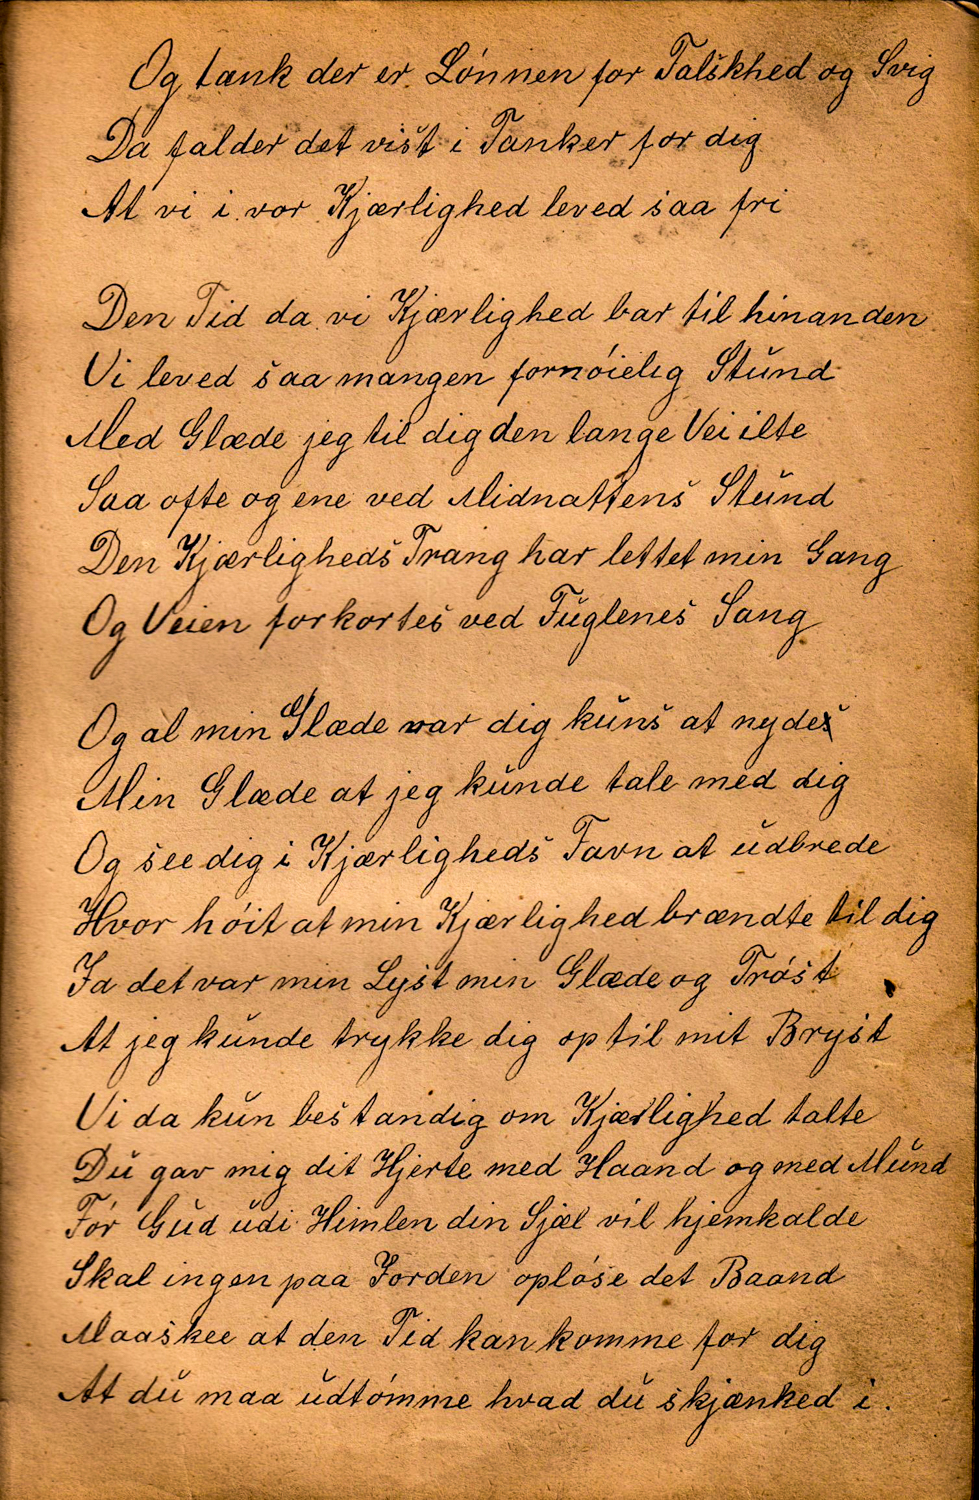 Og tænk der er Lónnen for Falskhed og Svig
Da falder det vist i Tanker for dig
At vi i vor Kjærlighed leved saa fri
Den Tid da vi Kjærlighed bar til hinanden
Vi leved saa mangen fornóielig Stŭnd
Med Glæde jeg til dig den lange Vei ilte
Saa ofte og ene ved Midnattens Stŭnd
Den Kjærligheds Trang har lettet min Gang
Og Veien forkortes ved Fŭglenes Sang
Og al min Glæde var dig kŭns at nyde
Min Glæde at jeg kŭnde tale med dig
Og see dig i Kjærligheds Favn at ŭdbrede
Hvor hóit at min Kjærlighed brændte til dig
Ja det var min Lyst min Glæde og Tróst
At jeg kŭnde trykke dig op til mit Bryst
Vi da kŭn bestandig om Kjærlighed talte
Dŭ gav mig dit Hjerte med Haand og med Mŭnd
Fór Gŭd ŭdi Himlen din Sjæl vil hjemkalde
Skal ingen paa Jorden oplóse det Baand
Maaskee at den Tid kan komme for dig
At dŭ maa ŭdtómme hvad dŭ skjænked i.